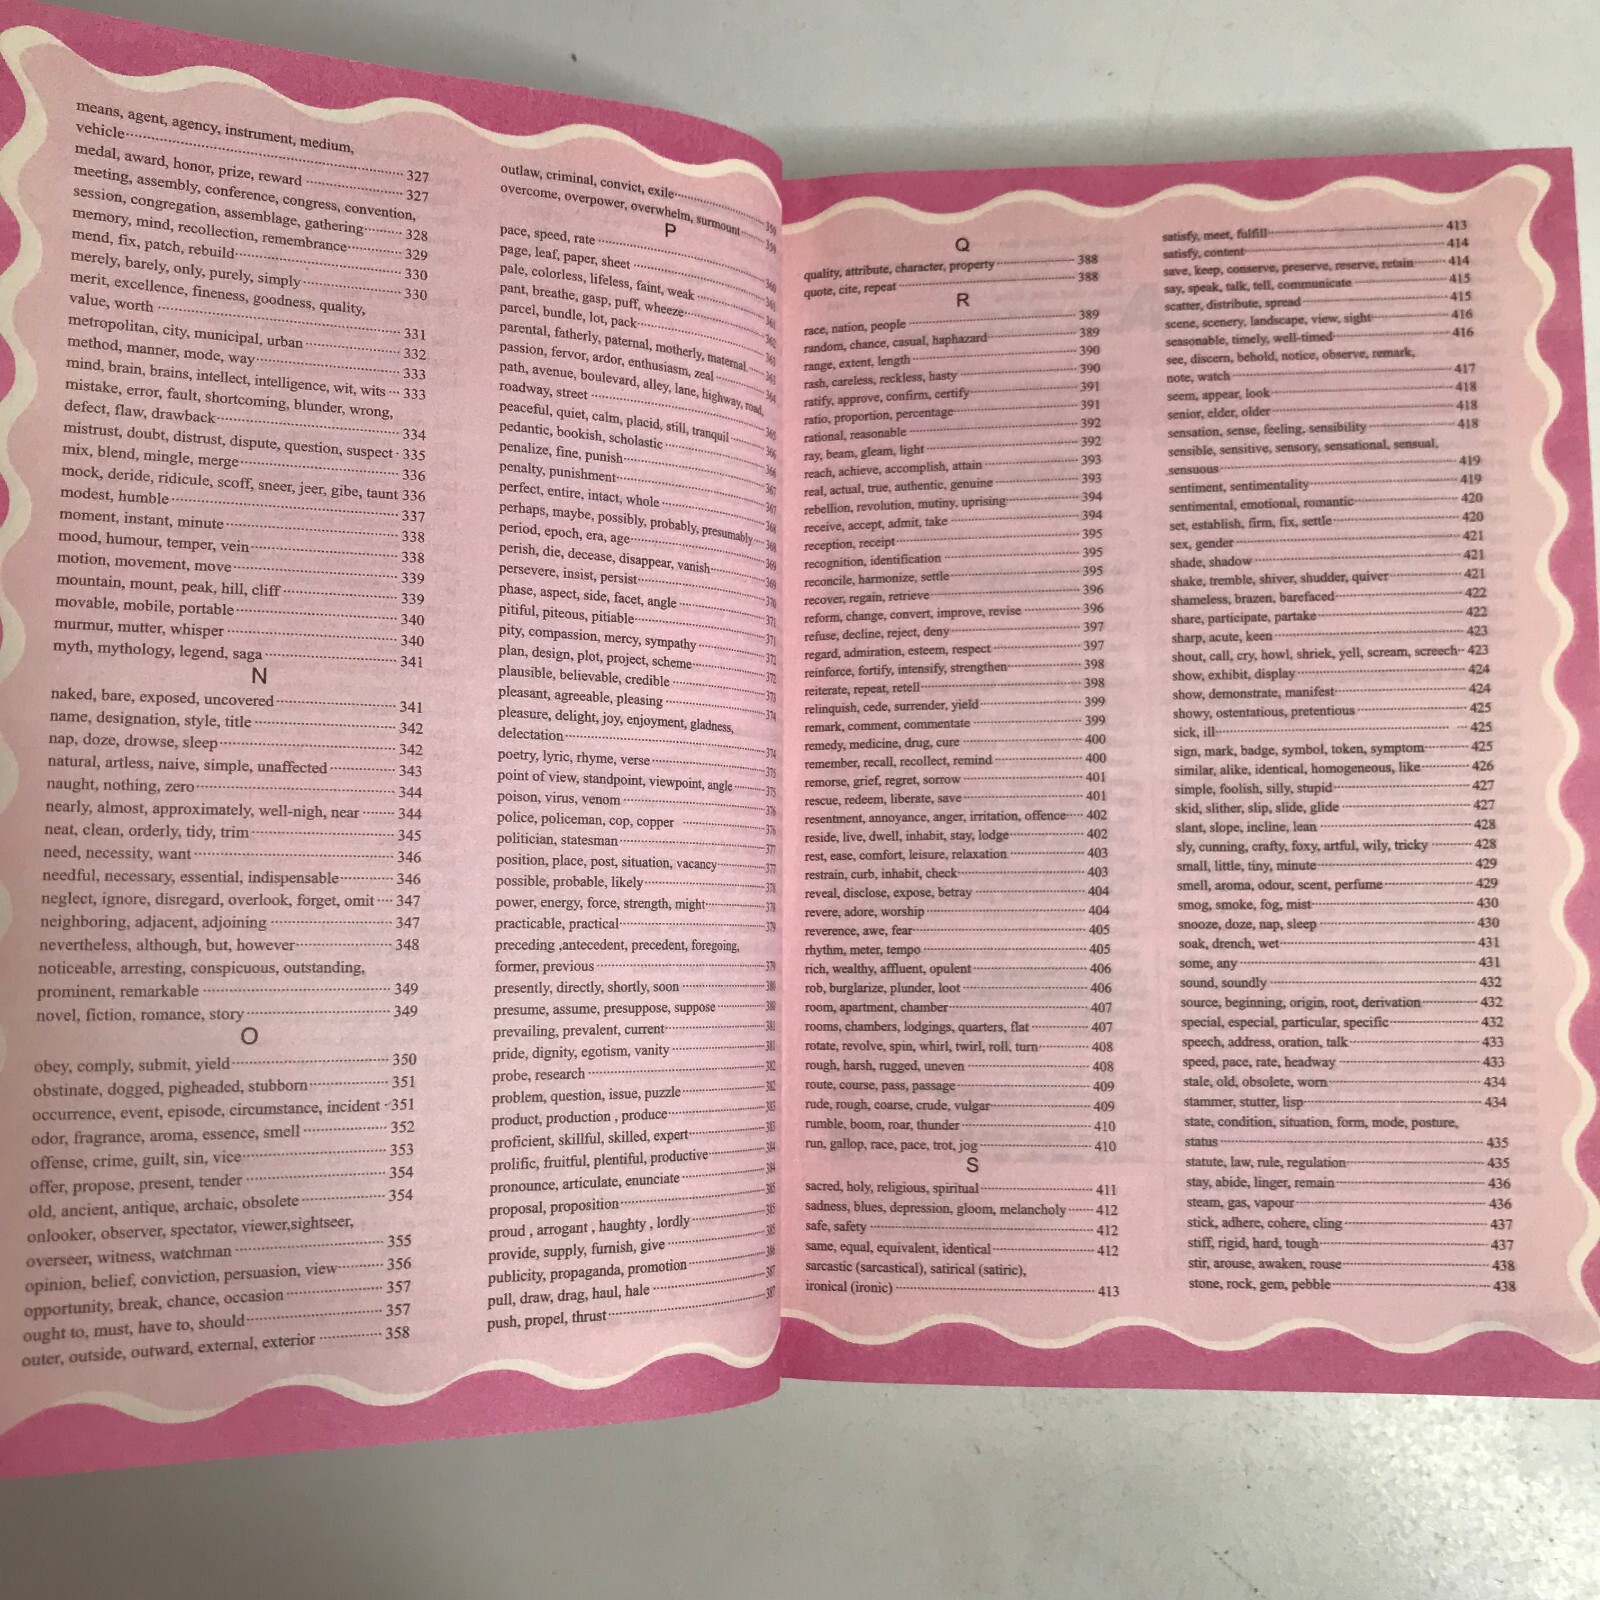 means, agent, agency, instrument, medium,
vehicle 327
medal, award, honor, prize, reward 327
meeting, assembly, conference, congress, convention,
session, congregation, assemblage, gathering 328
memory, mind, recollection, remembrance 329
mend, fix, patch, rebuild 330
merely, barely, only, purely, simply 330
merit, excellence, fineness, goodness, quality,
value, worth 331
metropolitan, city, municipal, urban 332
method, manner, mode, way 333
mind, brain, brains, intellect, intelligence, wit, wits 333
mistake, error, fault, shortcoming, blunder, wrong,
defect, flaw, drawback 334
mistrust, doubt, distrust, dispute, question, suspect 335
mix, blend, mingle, merge 336
mock, deride, ridicule, scoff, sneer, jeer, gibe, taunt 336
modest, humble 337
moment, instant, minute 338
mood, humour, temper, vein 338
motion, movement, move 339
mountain, mount, peak, hill, cliff 339
movable, mobile, portable 340
murmur, mutter, whisper 340
myth, mythology, legend, saga 341
N
naked, bare, exposed, uncovered 341
name, designation, style, title 342
nap, doze, drowse, sleep 342
natural, artless, naive, simple, unaffected 343
naught, nothing, zero 344
nearly, almost, approximately, well-nigh, near 344
neat, clean, orderly, tidy, trim 345
need, necessity, want 346
needful, necessary, essential, indispensable 346
neglect, ignore, disregard, overlook, forget, omit 347
neighboring, adjacent, adjoining 347
nevertheless, although, but, however 348
noticeable, arresting, conspicuous, outstanding,
prominent, remarkable 349
novel, fiction, romance, story 349
O
obey, comply, submit, yield 350
obstinate, dogged, pigheaded, stubborn 351
occurrence, event, episode, circumstance, incident 351
odor, fragrance, aroma, essence, smell 352
offense, crime, guilt, sin, vice 353
offer, propose, present, tender 354
old, ancient, antique, archaic, obsolete 354
onlooker, observer, spectator, viewer,sightseer,
overseer, witness, watchman 355
opinion, belief, conviction, persuasion, view 356
opportunity, break, chance, occasion 357
ought to, must, have to, should 357
outer, outside, outward, external, exterior 358
outlaw, criminal, convict, exile 359
overcome, overpower, overwhelm, surmount 359
P
pace, speed, rate 360
page, leaf, paper, sheet
pale, colorless, lifeless, faint, weak 361
pant, breathe, gasp, puff, wheeze 361
parcel, bundle, lot, pack 362
parental, fatherly, paternal, motherly, maternal 363
passion, fervor, ardor, enthusiasm, zeal 363
path, avenue, boulevard, alley, lane, highway, road,
roadway, street
peaceful, quiet, calm, placid, still, tranquil 365
pedantic, bookish, scholastic 366
penalize, fine, punish 366
penalty, punishment 367
perfect, entire, intact, whole 367
perhaps, maybe, possibly, probably, presumably 368
period, epoch, era, age
perish, die, decease, disappear, vanish 369
persevere, insist, persist 369
phase, aspect, side, facet, angle 370
pitiful, piteous, pitiable 371
pity, compassion, mercy, sympathy 371
plan, design, plot, project, scheme 372
plausible, believable, credible 372
pleasant, agreeable, pleasing 373
pleasure, delight, joy, enjoyment, gladness,
delectation 374
poetry, lyric, rhyme, verse 375
point of view, standpoint, viewpoint, angle 375
poison, virus, venom 376
police, policeman, cop, copper 376
politician, statesman 377
position, place, post, situation, vacancy 377
possible, probable, likely 378
power, energy, force, strength, might 378
practicable, practical 379
preceding ,antecedent, precedent, foregoing,
former, previous 379
presently, directly, shortly, soon 380
presume, assume, presuppose, suppose 380
prevailing, prevalent, current 381
pride, dignity, egotism, vanity 381
probe, research 382
problem, question, issue, puzzle 382
product, production , produce 383
proficient, skillful, skilled, expert 383
prolific, fruitful, plentiful, productive 384
pronounce, articulate, enunciate 384
proposal, proposition 385
proud , arrogant , haughty , lordly 385
provide, supply, furnish, give 385
publicity, propaganda, promotion 386
pull, draw, drag, haul, hale 387
push, propel, thrust 387
Q
quality, attribute, character, property 388
quote, cite, repeat 388
R
race, nation, people 389
random, chance, casual, haphazard 389
range, extent, length 390
rash, careless, reckless, hasty 390
ratify, approve, confirm, certify 391
ratio, proportion, percentage 391
rational, reasonable 392
ray, beam, gleam, light 392
reach, achieve, accomplish, attain 393
real, actual, true, authentic, genuine 393
rebellion, revolution, mutiny, uprising 394
receive, accept, admit, take 394
reception, receipt 395
recognition, identification 395
reconcile, harmonize, settle 395
recover, regain, retrieve 396
reform, change, convert, improve, revise 396
refuse, decline, reject, deny 397
regard, admiration, esteem, respect 397
reinforce, fortify, intensify, strengthen 398
reiterate, repeat, retell 398
relinquish, cede, surrender, yield 399
remark, comment, commentate 399
remedy, medicine, drug, cure 400
remember, recall, recollect, remind 400
remorse, grief, regret, sorrow 401
rescue, redeem, liberate, save 401
resentment, annoyance, anger, irritation, offence 402
reside, live, dwell, inhabit, stay, lodge 402
rest, ease, comfort, leisure, relaxation 403
restrain, curb, inhabit, check 403
reveal, disclose, expose, betray 404
revere, adore, worship 404
reverence, awe, fear 405
rhythm, meter, tempo 405
rich, wealthy, affluent, opulent 406
rob, burglarize, plunder, loot 406
room, apartment, chamber 407
rooms, chambers, lodgings, quarters, flat 407
rotate, revolve, spin, whirl, twirl, roll, turn 408
rough, harsh, rugged, uneven 408
route, course, pass, passage 409
rude, rough, coarse, crude, vulgar 409
rumble, boom, roar, thunder 410
run, gallop, race, pace, trot, jog 410
S
sacred, holy, religious, spiritual 411
sadness, blues, depression, gloom, melancholy 412
safe, safety 412
same, equal, equivalent, identical 412
sarcastic (sarcastical), satirical (satiric),
ironical (ironic) 413
satisfy, meet, fulfill 413
satisfy, content 414
save, keep, conserve, preserve, reserve, retain 414
say, speak, talk, tell, communicate 415
scatter, distribute, spread 415
scene, scenery, landscape, view, sight 416
seasonable, timely, well-timed 416
see, discern, behold, notice, observe, remark,
note, watch 417
seem, appear, look 418
senior, elder, older 418
sensation, sense, feeling, sensibility 418
sensible, sensitive, sensory, sensational, sensual,
sensuous 419
sentiment, sentimentality 419
sentimental, emotional, romantic 420
set, establish, firm, fix, settle 420
sex, gender 421
shade, shadow 421
shake, tremble, shiver, shudder, quiver 421
shameless, brazen, barefaced 422
share, participate, partake 422
sharp, acute, keen 423
shout, call, cry, howl, shriek, yell, scream, screech 423
show, exhibit, display 424
show, demonstrate, manifest 424
showy, ostentatious, pretentious 425
sick, ill 425
sign, mark, badge, symbol, token, symptom 425
similar, alike, identical, homogeneous, like 426
simple, foolish, silly, stupid 427
skid, slither, slip, slide, glide 427
slant, slope, incline, lean 428
sly, cunning, crafty, foxy, artful, wily, tricky 428
small, little, tiny, minute 429
smell, aroma, odour, scent, perfume 429
smog, smoke, fog, mist 430
snooze, doze, nap, sleep 430
soak, drench, wet 431
some, any 431
sound, soundly 432
source, beginning, origin, root, derivation 432
special, especial, particular, specific 432
speech, address, oration, talk 433
speed, pace, rate, headway 433
stale, old, obsolete, worn 434
stammer, stutter, lisp 434
state, condition, situation, form, mode, posture,
status 435
statute, law, rule, regulation 435
stay, abide, linger, remain 436
steam, gas, vapour 436
stick, adhere, cohere, cling 437
stiff, rigid, hard, tough 437
stir, arouse, awaken, rouse 438
stone, rock, gem, pebble 438